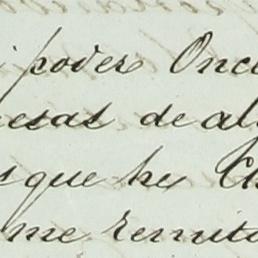 i poder Once
esas de al
que he
me remita